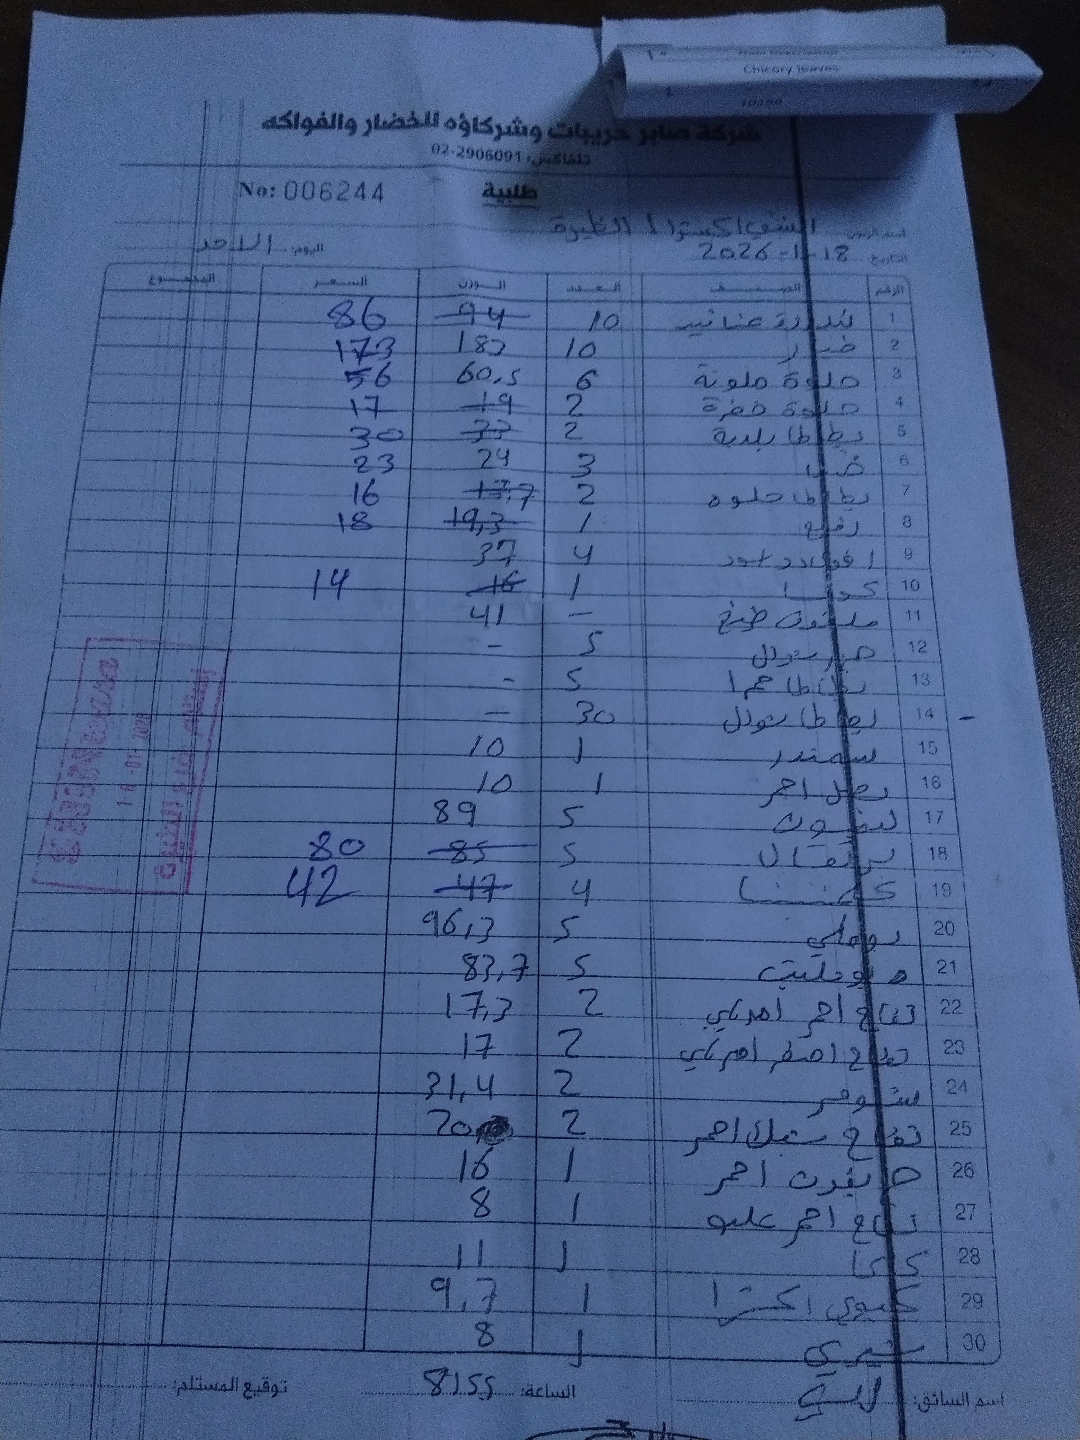 Chicory leaves
شركة صابر حريبات وشركاؤه للخضار والفواكه
تلفاكس: 02-2906091
No: 006244
طلبية
التاريخ: 18-1-2026
اليوم: الاحد
الرقم الصنف العدد الوزن السعر المجموع
1 بندورة عناقيد 10 94 86
2 خيار 10 182 173
3 حلوة ملونة 6 60,5 56
4 حلوة خضرة 2 19 17
5 بطاطا بلدية 2 33 30
6 3 24 23
7 بطاطا حلوه 2 17,7 16
8 1 19,3 18
9 4 37
10 كوسا 1 16 14
11 ملفوف طبخ - 41
12 5 -
13 بطاطا حمرا 5 -
14 بطاطا 30 -
15 شمندر 1 10
16 بصل احمر 1 10
17 ليمون 5 89
18 برتقال 5 85 80
19 كلمنتينا 4 47 42
20 بوملي 5 96,3
21 5 83,7
22 تفاح احمر امريكي 2 17,3
23 تفاح اصفر امريكي 2 17
24 2 31,4
25 تفاح احمر 2 20
26 احمر 1 16
27 تفاح احمر 1 8
28 كاكا 1 11
29 كيوي اكسترا 1 9,7
30 شيري 1 8
اسم السائق: الساعة: 8:55 توقيع المستلم: